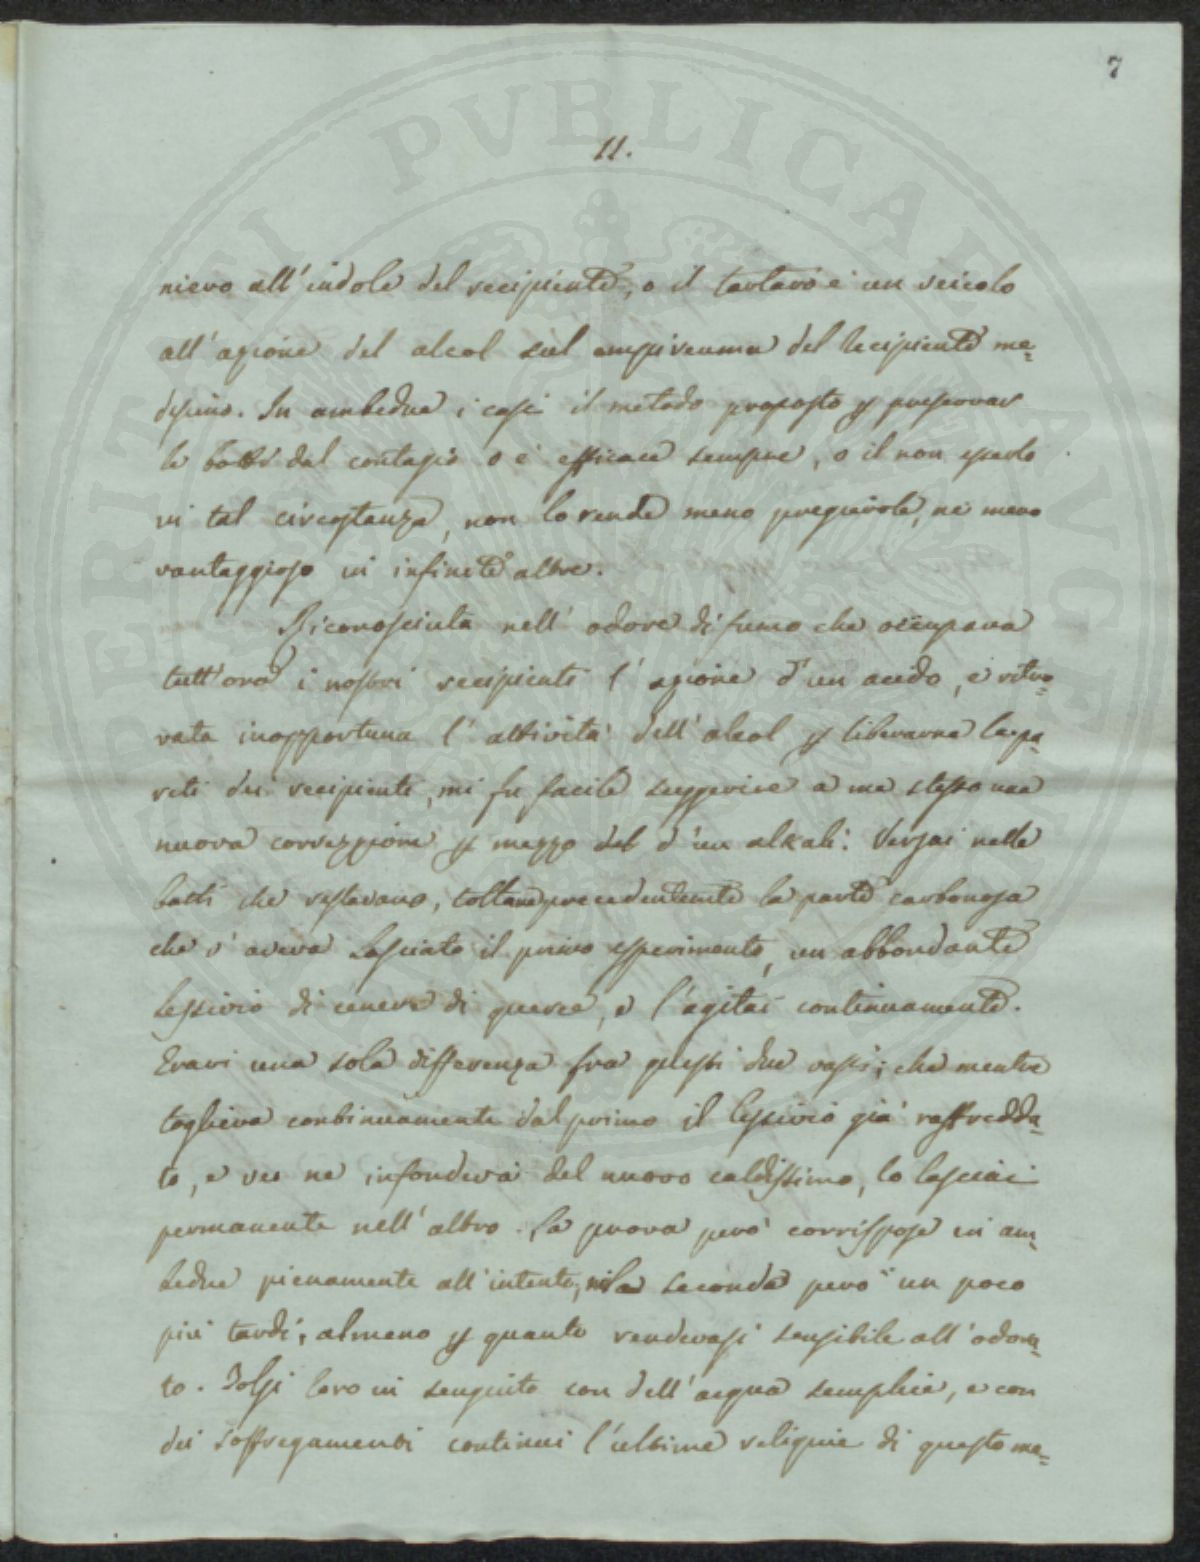 7
11.
nievo all'indole del recipiente, o il tartaro è un veicolo
all'azione del alcol sul empireuma del recipiente me=
desimo. In ambedue i casi il metodo proposto p preservar
le botti dal contagio o è efficace sempre, o il non esserlo
in tal circostanza, non lo rende meno pregievole, ne meno
vantaggioso in infinite altre.
Riconosciuta nell'odore di fumo che occupava
tutt'ora i nostri recipienti l'azione d'un acido, e ritro=
vata inopportuna l'attività dell'alcol p liberarne le pa=
reti dei recipienti, mi fu facile suggerire a me stesso una
nuova correzzione p mezzo del d'un alkali. Versai nelle
botti che restavano, toltane precedentemte la parte carbonosa
che v'aveva lasciato il primo esperimento, un abbondante
lessivio di cenere di querce, e l'agitai continuamente.
Eravi una sola differenza fra questi due vasi; che mentre
toglieva continuamente dal primo il lessivio già raffredda=
to, e ve ne infondeva del nuovo caldissimo, lo lasciai
permanente nell'altro. La prova però corrispose in am=
bedue pienamente all'intento; nella seconda però un poco
più tardi, almeno p quanto rendevasi sensibile all'odora=
to. Tolsi loro in seguito con dell'acqua semplice, e con
dei soffregamenti continui l'ultime reliquie di questo me=
PERITATI PVBLICAE AVGENDAE